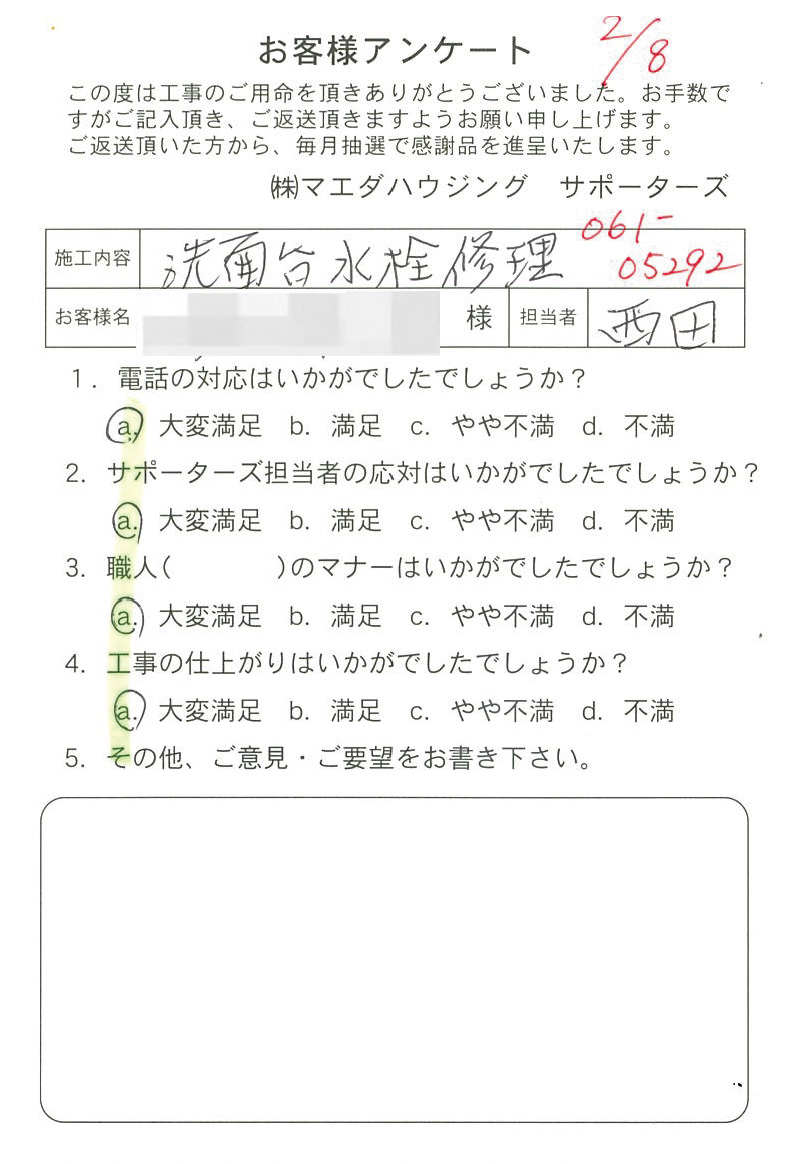 お客様アンケート
2/8
この度は工事のご用命を頂きありがとうございました。お手数で
すがご記入頂き、ご返送頂きますようお願い申し上げます。
ご返送頂いた方から、毎月抽選で感謝品を進呈いたします。
㈱マエダハウジング サポーターズ
061-
05292
施工内容 洗面台水栓修理
お客様名 様 担当者 西田
1. 電話の対応はいかがでしたでしょうか？
a. 大変満足 b. 満足 c. やや不満 d. 不満
2. サポーターズ担当者の応対はいかがでしたでしょうか？
a. 大変満足 b. 満足 c. やや不満 d. 不満
3. 職人( )のマナーはいかがでしたでしょうか？
a. 大変満足 b. 満足 c. やや不満 d. 不満
4. 工事の仕上がりはいかがでしたでしょうか？
a. 大変満足 b. 満足 c. やや不満 d. 不満
5. その他、ご意見・ご要望をお書き下さい。